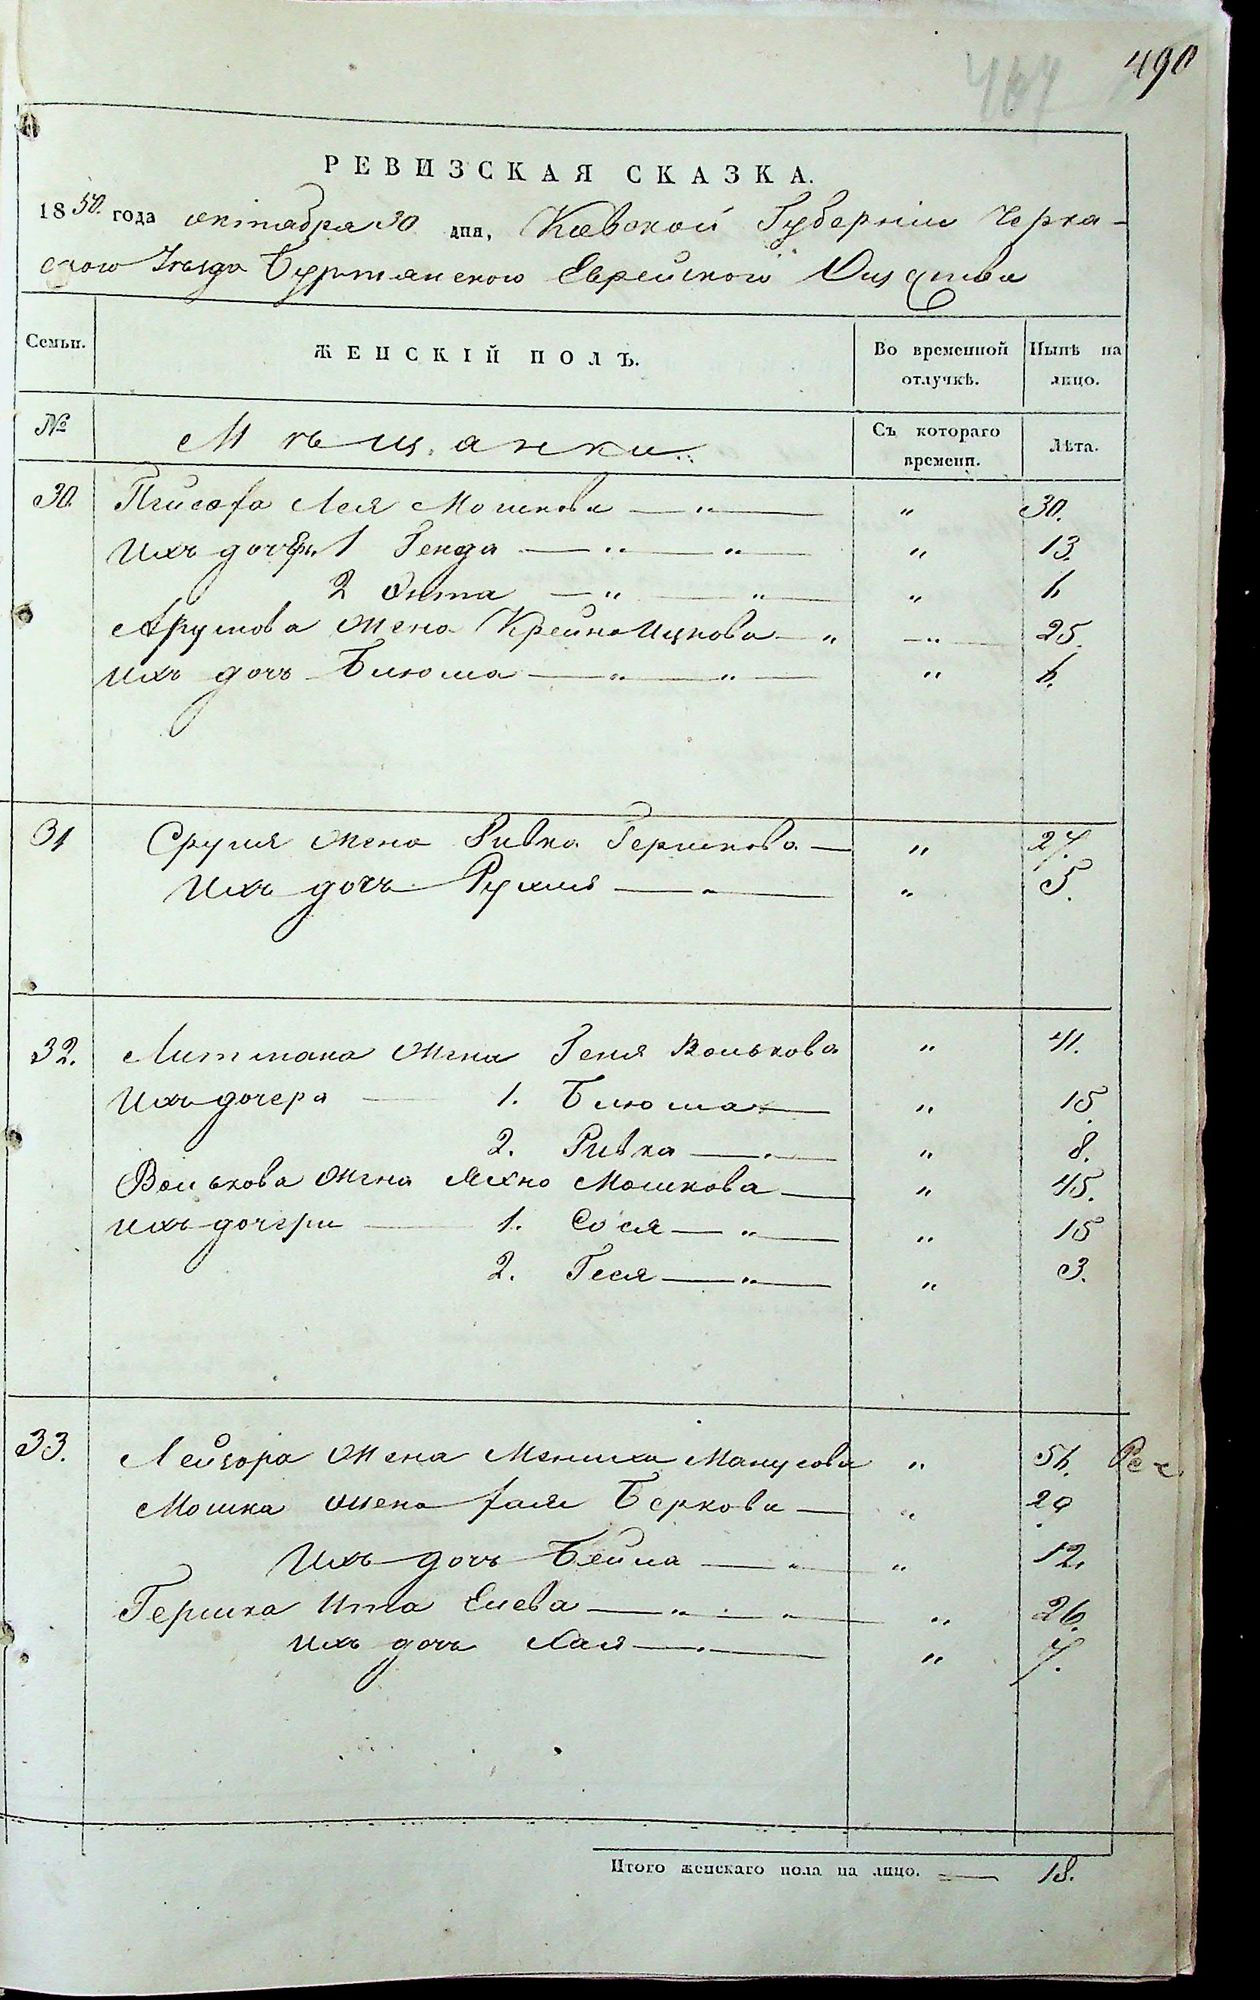 490
467
РЕВИЗСКАЯ СКАЗКА.
1850. года октября 30 дня, Киевской Губерніи Черка-
скаго Уѣзда Буртянского Еврейского Общества
Семьи. ЖЕНСКІЙ ПОЛЪ. Во временной отлучкѣ. Нынѣ на лицо.
№ Мѣщанки. Съ котораго времени. Лѣта.
30. Лея Мошкова — " — " 30.
Ихъ дочери 1 Генда — " — " — " 13.
2 — " — " — "
жена Крейна Ицкова — " — " — 25.
Ихъ дочь Блюма — " — " — "
31 Сруля жена Ривка Гершкова — " 27.
Ихъ дочь Рухля — " — " 5.
32. Литмана жена Геня Волькова " 41.
Ихъ дочери — 1. Блюма — " 15.
2. Ривка — " — " 8.
Волькова жена Яхно Мошкова — " 45.
Ихъ дочери — 1. Сося — " — " 15
2. Геся — " — " 3.
33. Лейзора жена Менуха Манусова "
Мошка жена Хая Беркова — " 29
Ихъ дочь Бейла — " — " 12.
Гершка Ита Елева — " — " — " 26.
Ихъ дочь Хая — " — " 7.
Итого женскаго пола на лицо. — 18.